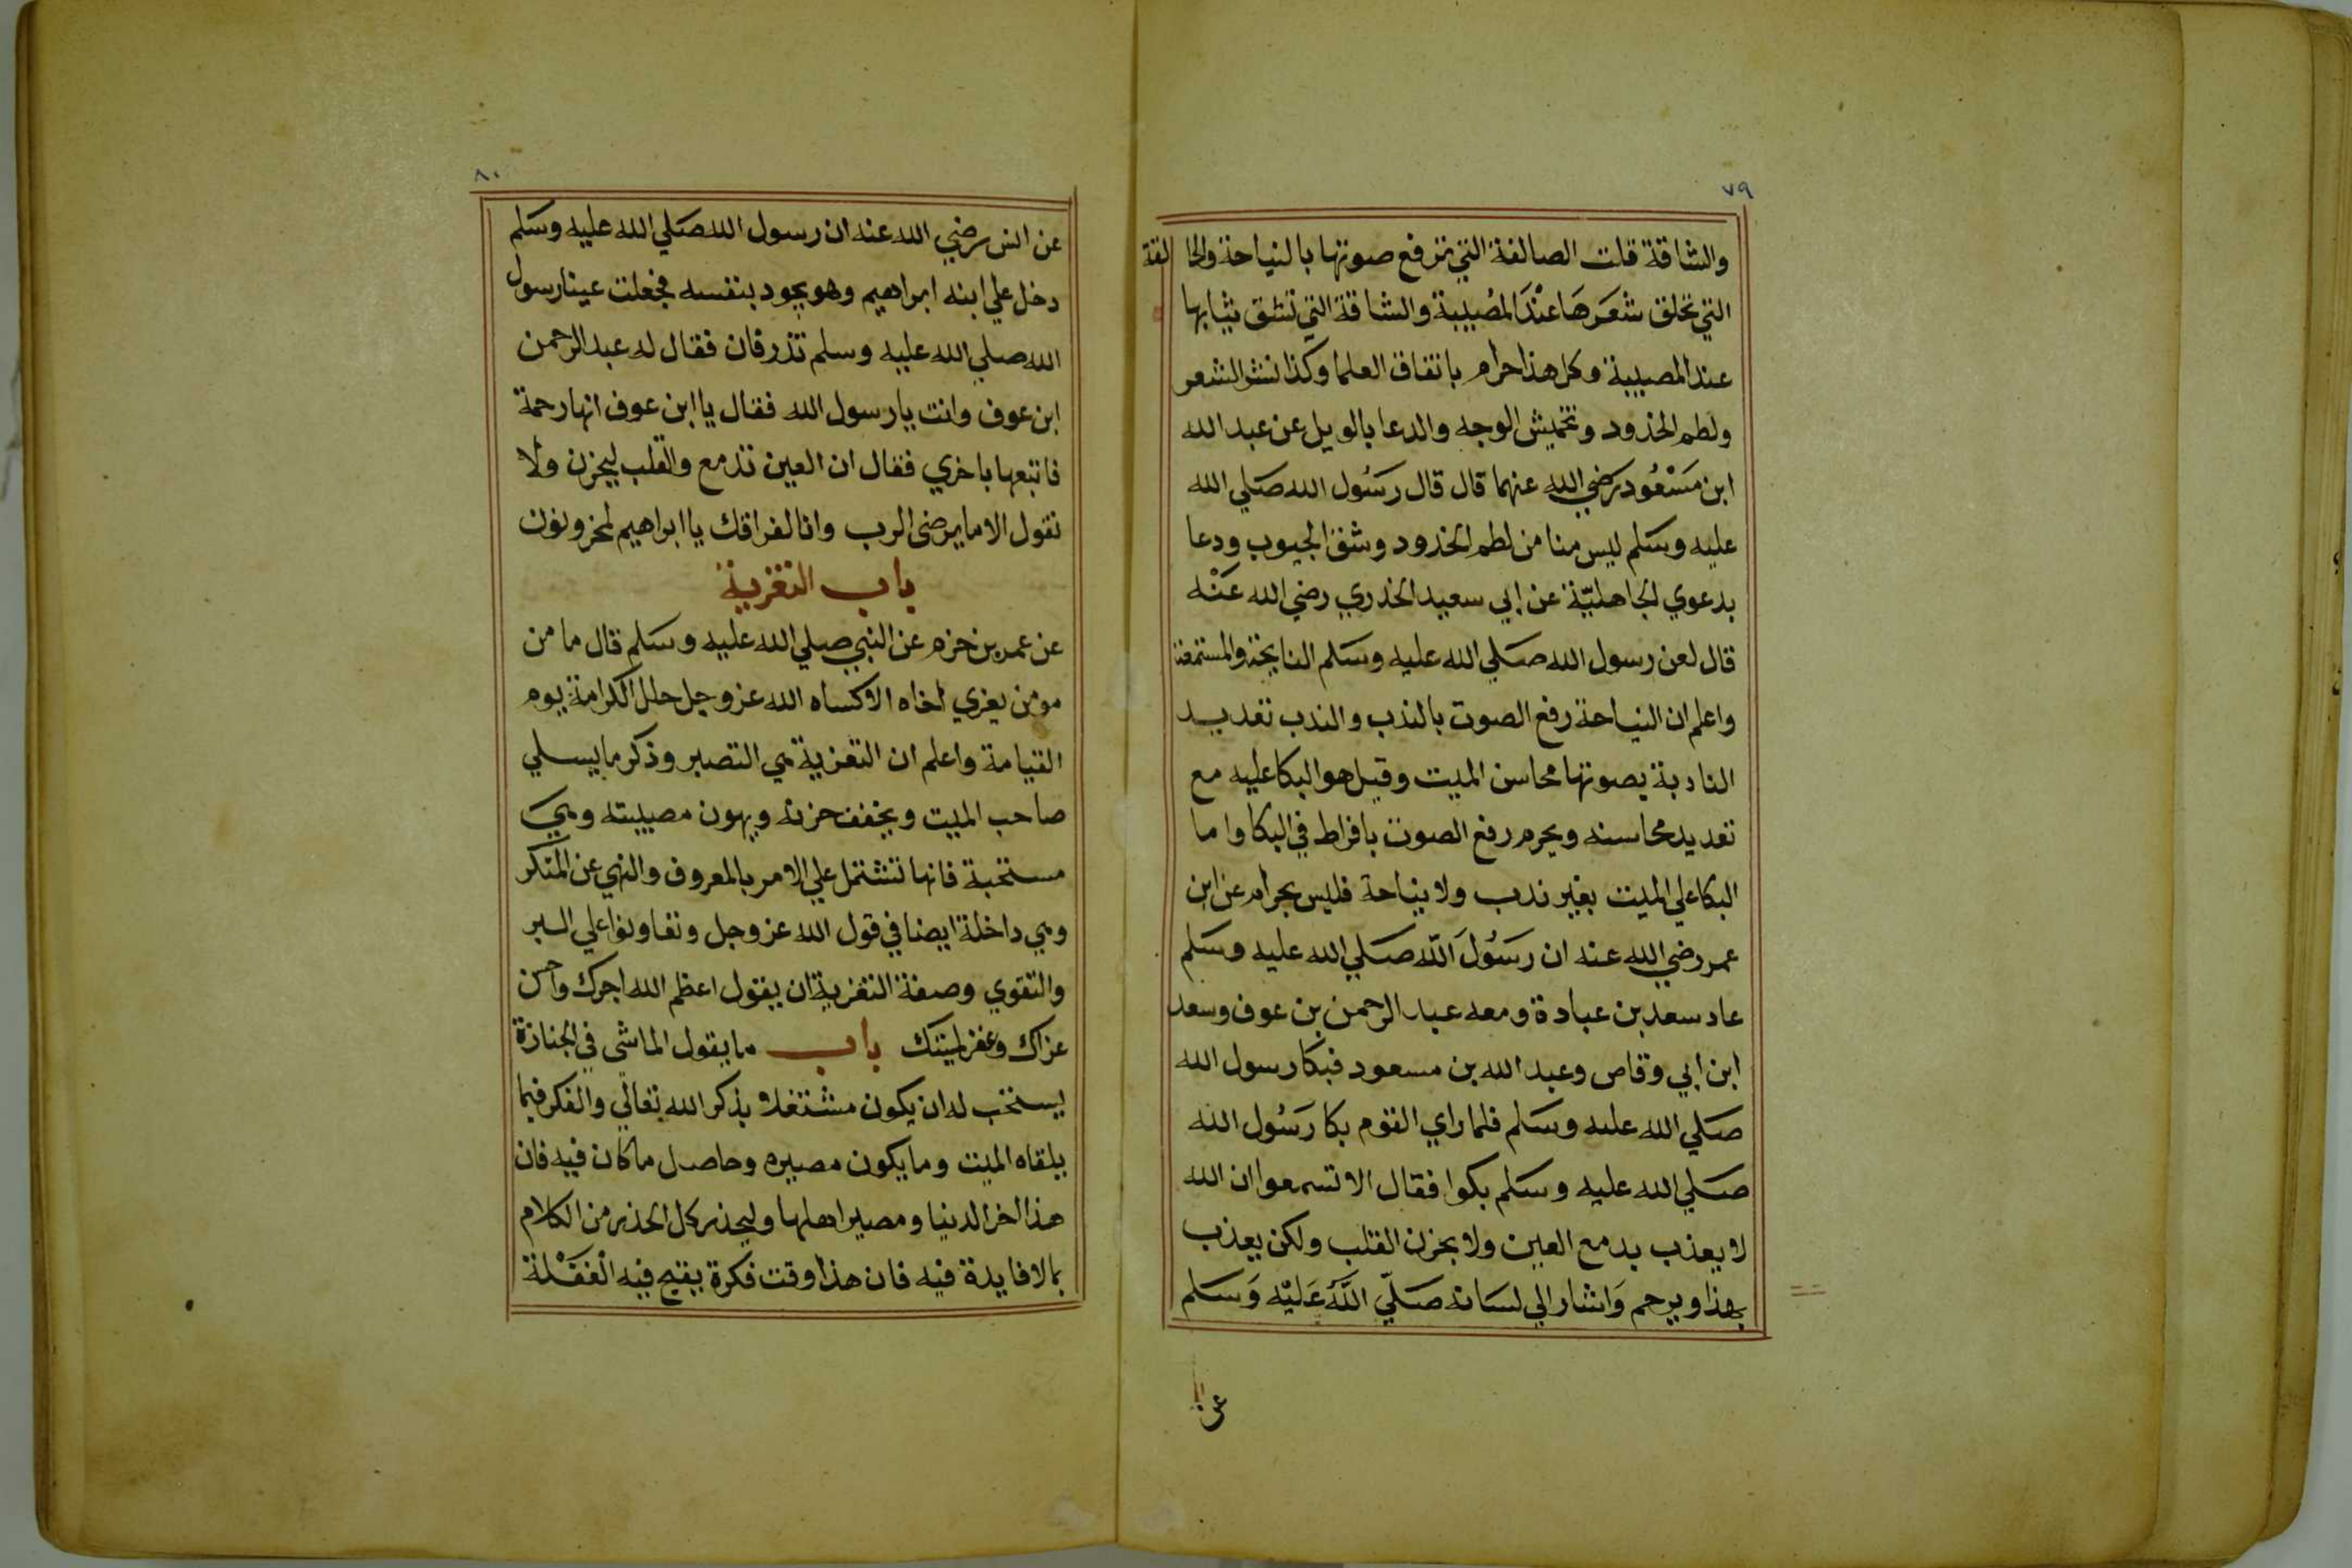 ٧٩
والشاقة قلت الصالقة التي ترفع صوتها بالنياحة والحالقة
التي تحلق شَعَرهَا عنْدَ المُصيبة والشاقة التي تشق ثيابها
عند المصيبة وكل هذا حرام باتفاق العلما وكذا نشر الشعر
ولطم الخدود وتخميش الوجه والدعا بالويل عن عبد الله
ابن مَسْعُود رضي الله عنهما قال قال رَسُول الله صَلي الله
عليه وسَلم ليس منا من لطم الخدود وشق الجيوب ودعا
بدعوي الجاهليّة عن ابي سعيد الخدري رضي الله عَنْه
قال لعن رسول الله صَلي الله عليه وسَلم النايحة والمستمعة
واعلم ان النياحة رفع الصوت بالندب والندب تعديد
النادبة بصوتها محاسن الميت وقيل هو البكا عليه مع
تعديد محاسنه ويحرم رفع الصوت بافراط في البكا واما
البكا علي الميت بغير ندب ولا نياحة فليس بحرام عن ابن
عمر رضي الله عنه ان رَسُولَ اللّه صَلي الله عليه وسَلم
عاد سعد بن عبادة ومعه عبد الرحمن بن عوف وسعد
ابن ابي وقاص وعبد الله بن مسعود فبكا رسول الله
صَلي الله عليه وسَلم فلما راي القوم بكا رَسُول الله
صَلي الله عليه وسَلم بكوا فقال الا تسمعوا ان الله
لا يعذب بدمع العين ولا بحزن القلب ولكن يعذب
بهذا ويرحم وَاشار الي لسَانه صَلّي اللّهُ عَليْه وَسَلم
عن
٨٠
عن انس رضي الله عنه ان رسول الله صَلي الله عليه وسَلم
دخل علي ابنه ابراهيم وهو يجود بنفسه فجعلت عينا رسول
الله صلي الله عليه وسلم تذرفان فقال له عبد الرحمن
ابن عوف وانت يا رسول الله فقال يا ابن عوف انها رحمة
فاتبعها باخري فقال ان العين تدمع والقلب ليحزن ولا
نقول الا ما يرضي الرب وانا لفراقك يا ابراهيم لمحزونون
باب التعزية
عن عمر بن حزم عن النبي صلي الله عليه وسَلم قال ما من
مومن يعزي اخاه الا كساه الله عز وجل حلل الكرامة يوم
القيامة واعلم ان التعزية هي التصبر وذكر ما يسلي
صاحب الميت ويخفف حزنه ويهون مصيبته وهي
مستحبة فانها تشتمل علي الامر بالمعروف والنهي عن المنكر
وهي داخلة ايضا في قول الله عز وجل وتعاونوا علي البر
والتقوي وصفة التعزية ان يقول اعظم الله اجرك واحسن
عزاك وغفر لميتك باب ما يقول الماشي في الجنازة
يستحب له ان يكون مشتغلا بذكر الله تعالي والفكر فيما
يلقاه الميت وما يكون مصيره وحاصل ما كان فيه فان
هذا اخر الدنيا ومصير اهلها وليحذر كل الحذر من الكلام
بما لا فايدة فيه فان هذا وقت فكرة يقبح فيه الْغفَْلة